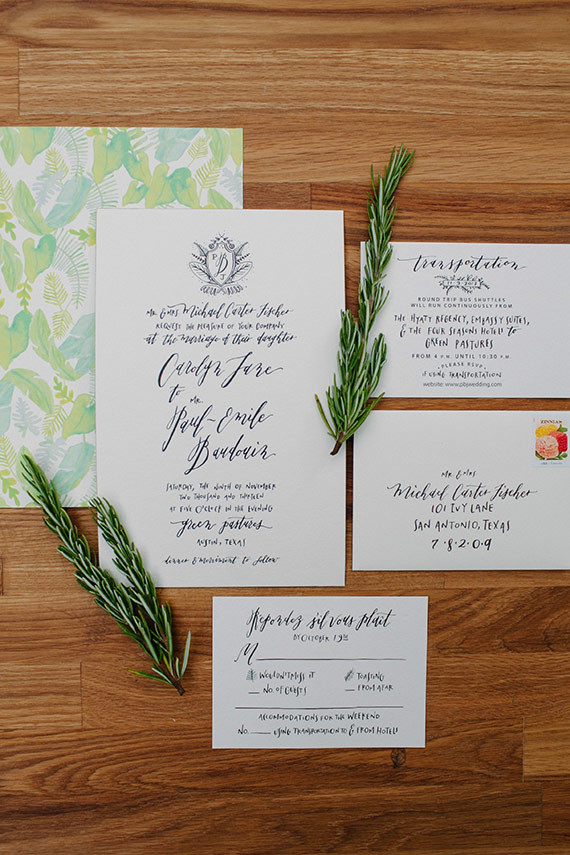 P B J
Mr. & Mrs. Michael Carter Fischer
REQUEST THE PLEASURE OF YOUR COMPANY
at the marriage of their daughter
Carolyn Jane
to Mr.
Paul-Emile
Baudouin
SATURDAY, THE NINTH OF NOVEMBER
TWO THOUSAND AND THIRTEEN
AT FIVE O'CLOCK IN THE EVENING
green pastures
AUSTIN, TEXAS
dinner & merriment to follow
Transportation
11.9.2013
ROUND TRIP BUS SHUTTLES
WILL RUN CONTINUOUSLY FROM
THE HYATT REGENCY, EMBASSY SUITES,
& THE FOUR SEASONS HOTELS TO
GREEN PASTURES
FROM 4 P.M. UNTIL 10:30 P.M.
PLEASE RSVP
IF USING TRANSPORTATION
website: www.pbjwedding.com
ZINNIAS
Mr. & Mrs.
Michael Carter Fischer
101 IVY LANE
SAN ANTONIO, TEXAS
7·8·2·0·9
Repondez s'il vous plait
BY OCTOBER 19TH
M
WOULDN'T MISS IT
NO. OF GUESTS
TOASTING
FROM AFAR
ACCOMMODATIONS FOR THE WEEKEND
NO. USING TRANSPORTATION TO & FROM HOTEL